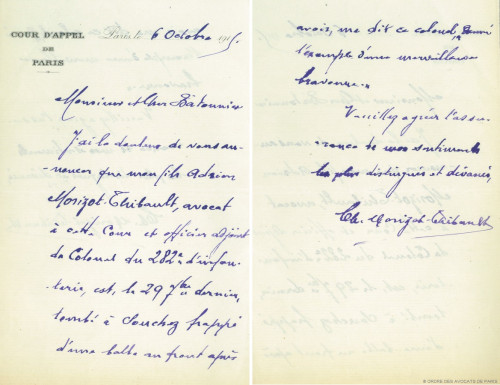 COUR D'APPEL
DE
PARIS
Paris, le 6 Octobre 1915.
Monsieur et cher Bâtonnier
J'ai la douleur de vous an-
noncer que mon fils Adrien
Morizot-Thibault, avocat
à cette Cour et officier adjoint
du Colonel du 282e d'infan-
terie, est, le 29 7bre dernier,
tombé à Souchez frappé
d'une balle au front après
avoir, me dit ce colonel, donné
l'exemple d'une merveilleuse
bravoure.
Veuillez agréer l'assu-
rance de mes sentiments
les plus distingués et dévoués,
Ch. Morizot-Thibault
© ORDRE DES AVOCATS DE PARIS